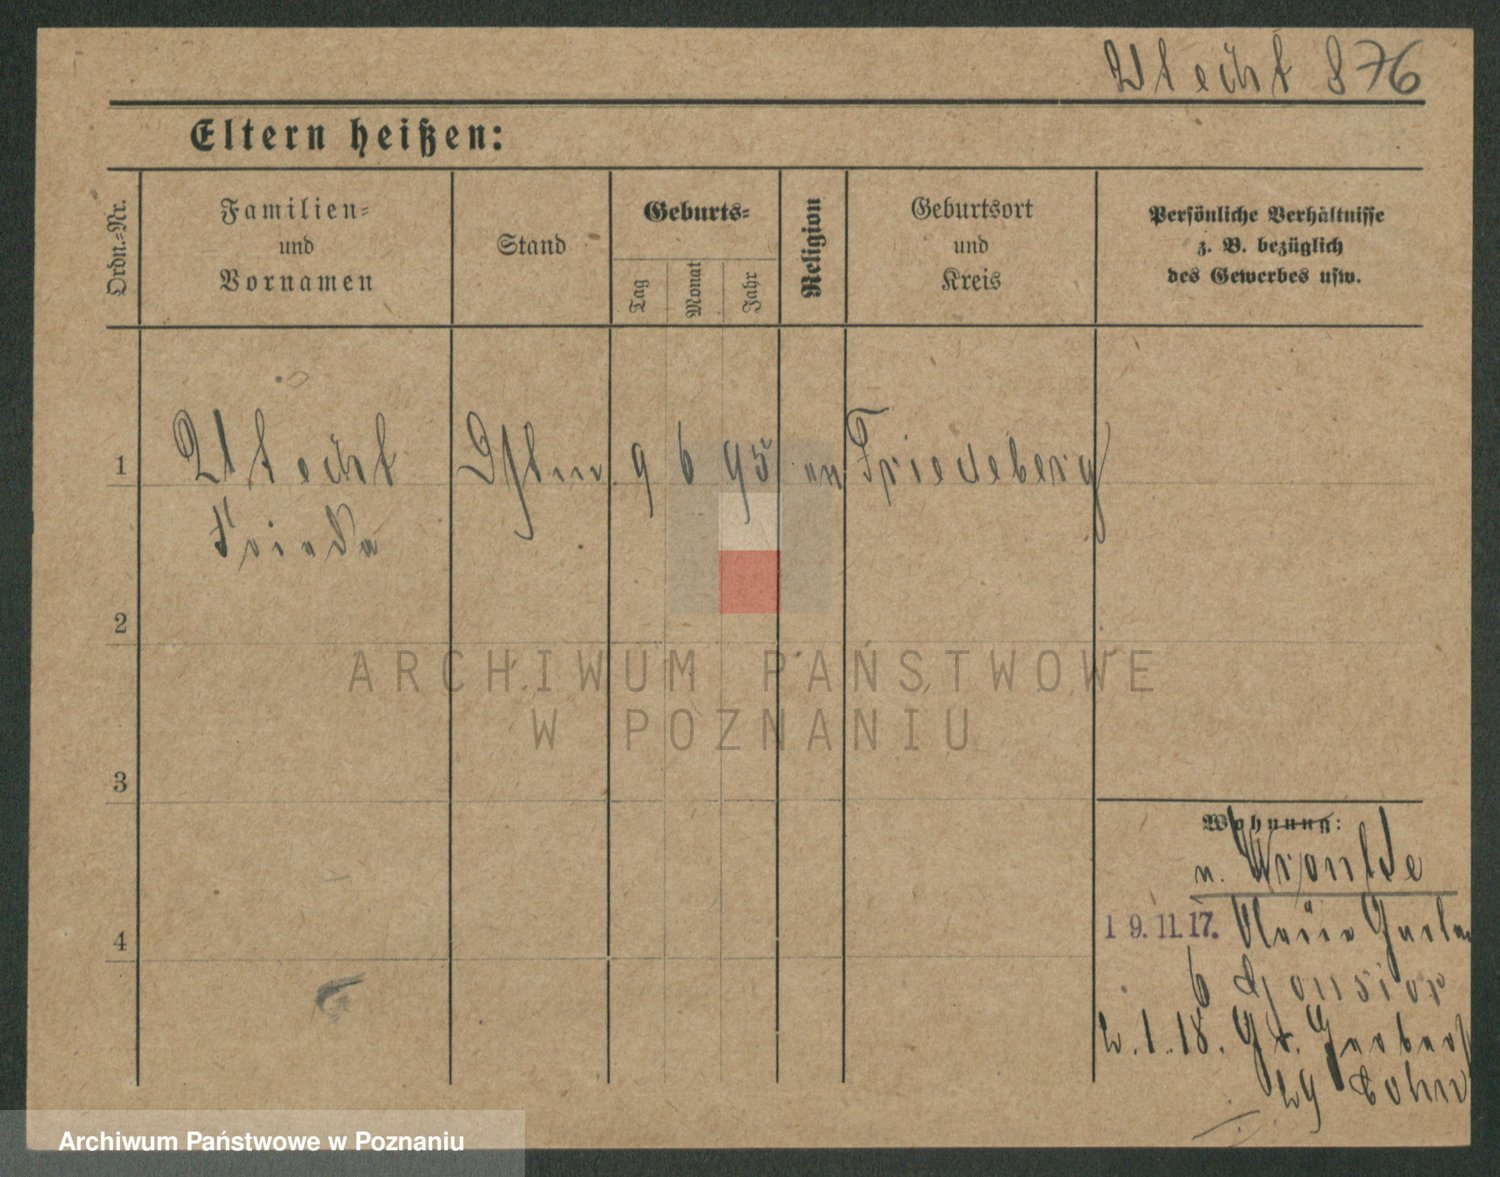 Utecht 876
Eltern heißen:
Ordn.-Nr.
Familien-
und
Vornamen
Stand
Geburts-
Tag
Monat
Jahr
Religion
Geburtsort
und
Kreis
Persönliche Verhältnisse
z. B. bezüglich
des Gewerbes usw.
1
Utecht
9 6 95
Friedeberg
Frieda
2
ARCHIWUM PAŃSTWOWE
W POZNANIU
3
Wohnung:
n. Wronke
19.11.17.
4
6 Gonsior
2.1.18. Gr. Gerberst
29 Cohn
Archiwum Państwowe w Poznaniu